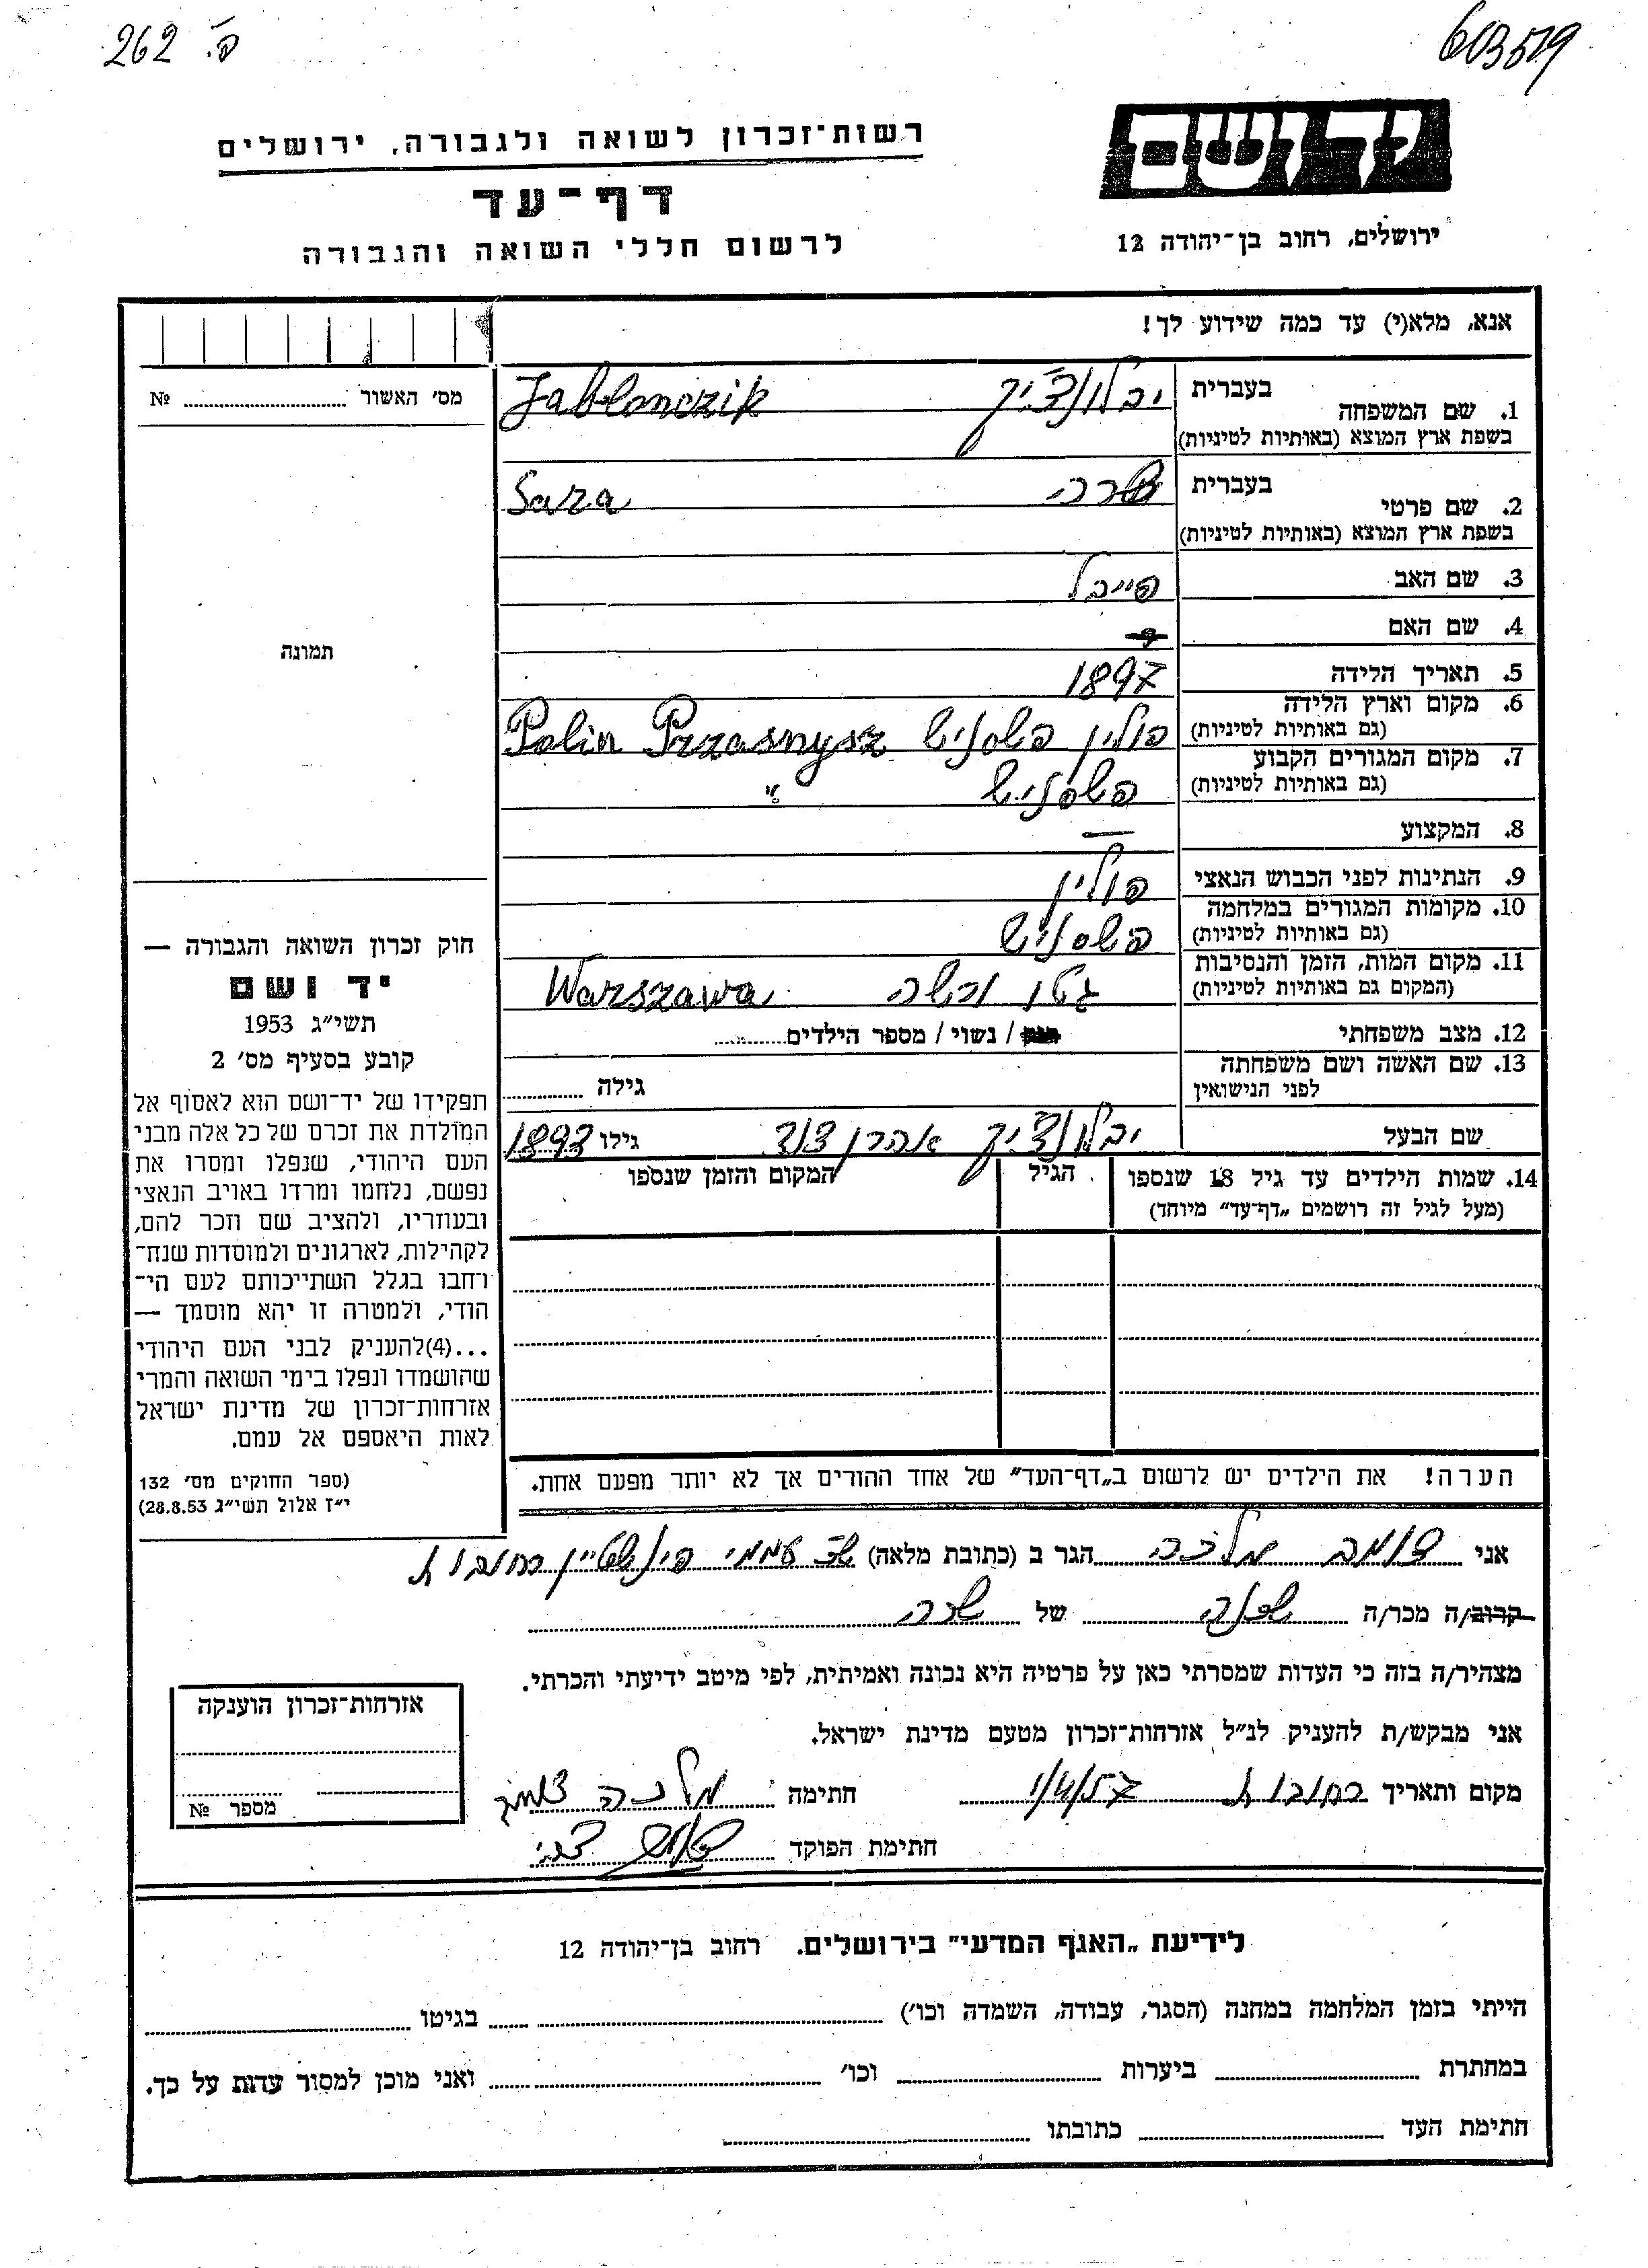 262 פ.
603519
ידושם
ירושלים, רחוב בן־יהודה 12
רשות־זכרון לשואה ולגבורה, ירושלים
דף־עד
לרשום חללי השואה והגבורה
אנא, מלא(י) עד כמה שידוע לך!
מס׳ האשור № 
1. שם המשפחה בעברית יבלונצ׳יק Jablonczik
בשפת ארץ המוצא (באותיות לטיניות)
2. שם פרטי בעברית שרה Sara
בשפת ארץ המוצא (באותיות לטיניות)
3. שם האב פייבל
4. שם האם
5. תאריך הלידה 1897
6. מקום וארץ הלידה (גם באותיות לטיניות) פולין פשסניש Polin Przasnysz
7. מקום המגורים הקבוע (גם באותיות לטיניות) פשסניש "
8. המקצוע —
9. הנתינות לפני הכבוש הנאצי פולין
10. מקומות המגורים במלחמה (גם באותיות לטיניות) פשסניש
11. מקום המות, הזמן והנסיבות (המקום גם באותיות לטיניות) גטו ורשה Warszawa
12. מצב משפחתי / נשוי / מספר הילדים
13. שם האשה ושם משפחתה לפני הנישואין גילה
שם הבעל יבלונצ׳יק אהרן דוד גילו 1893
14. שמות הילדים עד גיל 18 שנספו הגיל המקום והזמן שנספו
(מעל לגיל זה רושמים „דף־עד״ מיוחד)
תמונה
חוק זכרון השואה והגבורה —
יד ושם
תשי״ג 1953
קובע בסעיף מס׳ 2
תפקידו של יד־ושם הוא לאסוף אל
המולדת את זכרם של כל אלה מבני
העם היהודי, שנפלו ומסרו את
נפשם, נלחמו ומרדו באויב הנאצי
ובעוזריו, ולהציב שם וזכר להם,
לקהילות, לארגונים ולמוסדות שנח־
רחבו בגלל השתייכותם לעם הי־
הודי, ולמטרה זו יהא מוסמך —
...(4)להעניק לבני העם היהודי
שהושמדו ונפלו בימי השואה והמרי
אזרחות־זכרון של מדינת ישראל
לאות היאספם אל עמם.
(ספר החוקים מס׳ 132
י״ז אלול תשי״ג 28.8.53)
הערה! את הילדים יש לרשום ב„דף־העד״ של אחד ההורים אך לא יותר מפעם אחת.
אני מלכה הגר ב (כתובת מלאה) עממי רחובות
קרוב/ה מכר/ה שכנה של שרה
מצהיר/ה בזה כי העדות שמסרתי כאן על פרטיה היא נכונה ואמיתית, לפי מיטב ידיעתי והכרתי.
אני מבקש/ת להעניק לנ״ל אזרחות־זכרון מטעם מדינת ישראל.
מקום ותאריך רחובות 1/4/57 חתימה מלכה
חתימת הפוקד
אזרחות־זכרון הוענקה
מספר №
לידיעת „האגף המדעי״ בירושלים. רחוב בן־יהודה 12
הייתי בזמן המלחמה במחנה (הסגר, עבודה, השמדה וכו׳) בגיטו
במחתרת ביערות וכו׳ ואני מוכן למסור עדות על כך.
חתימת העד כתובתו